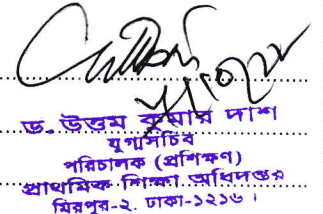 ড. উত্তম কুমার দাশ
যুগ্মসচিব
পরিচালক (প্রশিক্ষণ)
প্রাথমিক শিক্ষা অধিদপ্তর
মিরপুর-২, ঢাকা-১২১৬।